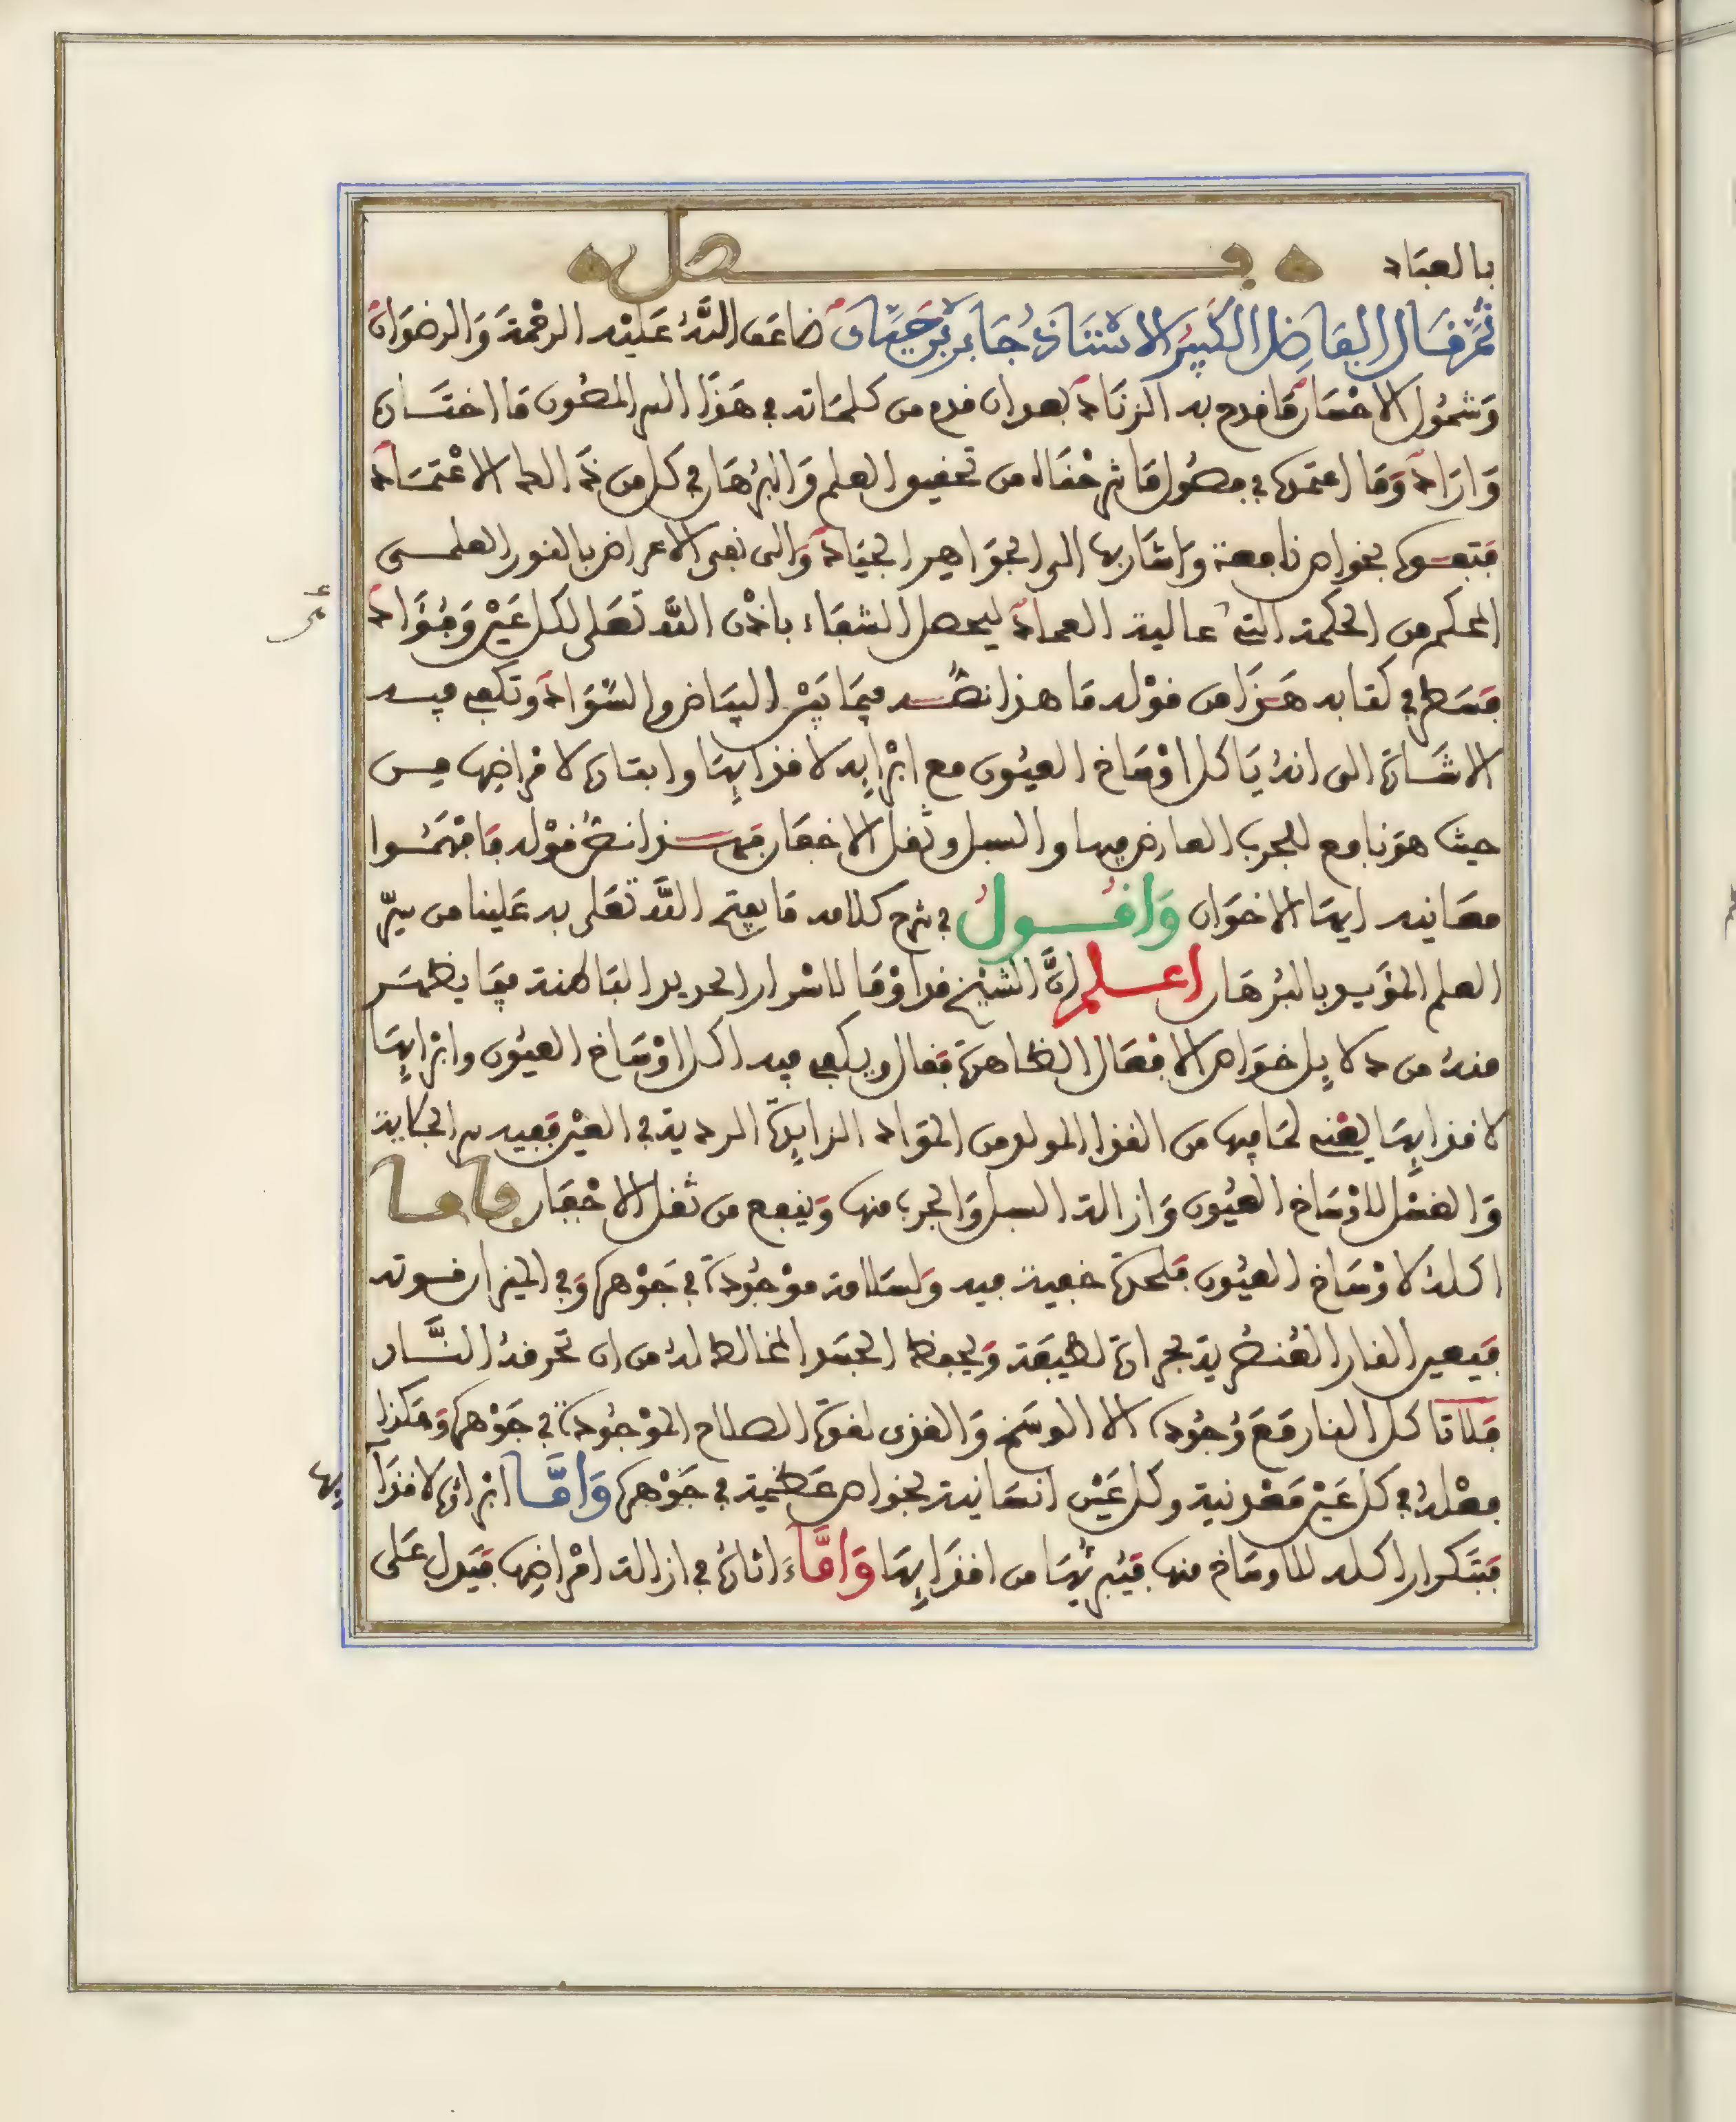 بالعباد فصل
ثم قال الفاضل الكبير الاستاذ جابر بن حيان ضاعف الله عليه الرحمة والرضوان
وشمول الاحسان ما قدح به الزناد بعد ان قدم من كلماته في هذا السر المصون ما اختاره
واراد وما اعتمدها في فصول ما شرحناه من تحقيق العلم والبرهان في كل من ذلك الاعتماد
بخواص نافعة واشار بها الى الجواهير الجياد والى نفي الاعراض بالنور العلمي
المحكم من الحكمة التي عالية العماد ليحصل الشفاء باذن الله تعلى لكل عين وفؤاد
فسطر في كتابه هذا من قوله ما هذا نصه فيما بين البياض والسواد وتكفي فيه
الاشارة الى انه ياكل اوساخ العيون مع ابرايه لاقذايها وابتاره لامراضها من
حيث هو نافع للجرب العارض فيها والسبل وثقل الاجفان فهذا نص قوله فافهموا
معانيه ايها الاخوان واقول في شرح كلامه ما يفتح الله تعلى به علينا من سر
العلم المؤيد بالبرهان اعلم ان الشيخ قد اوما لاسرار الحديد الباطنة فيما يظهر
منه من دلايل خواص الافعال الظاهرة فقال ويكفي فيه اكل اوساخ العيون وابرايها
لاقذايها يعني لما فيها من القذا المولد من المواد الزايدة الردية في العين ففيه سر الجلاية
والغسل لاوساخ العيون وازالة السبل والجرب منها وينفع من ثقل الاجفان فاما
اكله لاوساخ العيون فلحدة خفية فيه ولسلامة موجودة في جوهره وفي الميزان قوته
فيصير النار العنصرية بحرارة لطيفة ويحفظ الجسد المخالط له من ان تحرقه النار
فلا تاكل النار مع وجوده الا الوسخ والقذى لقوة الصلاح الموجودة في جوهره وهكذا
فعله في كل عين معدنية وكل عين انسانية بخواص عظيمة في جوهره واما ابراؤه لاقذايها
فبتكرار اكله للاوساخ منها فيبرئها من اقذايها واما اثاره في ازالة امراضها فيدل على